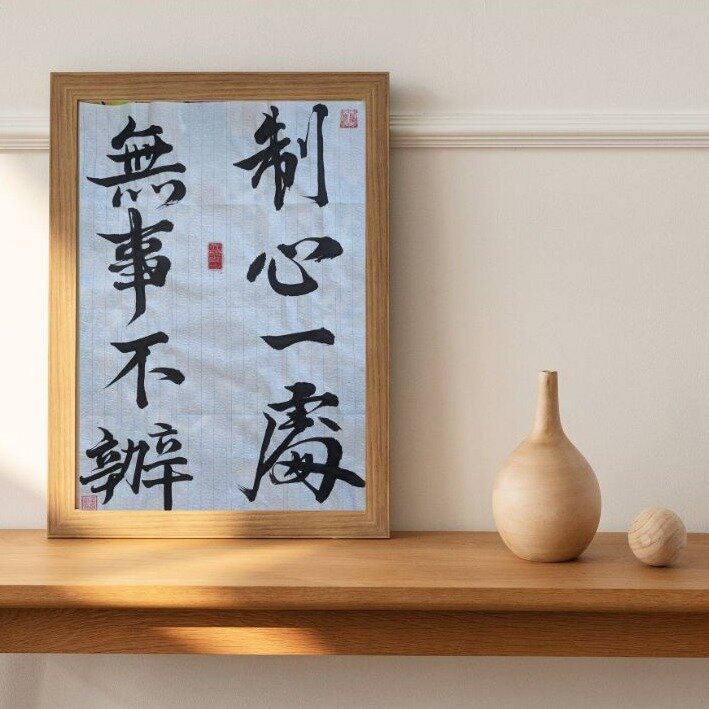 制心一處
無事不辦